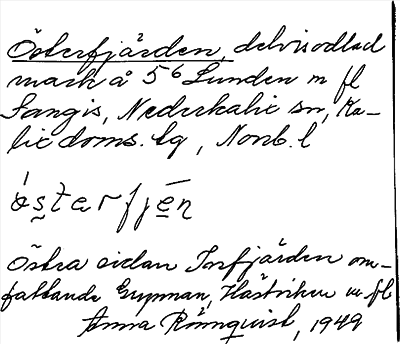 Österfjärden, delvis odlad
mark å 5⁶ Lunden m fl
Sangis, Nederkalix sn, Ka-
lix doms. lg, Norrb. l
östərfjēn
Östra sidan Torfjärden om-
fattande Gypman, Hästviken m fl
Anna Rönnquist, 1949